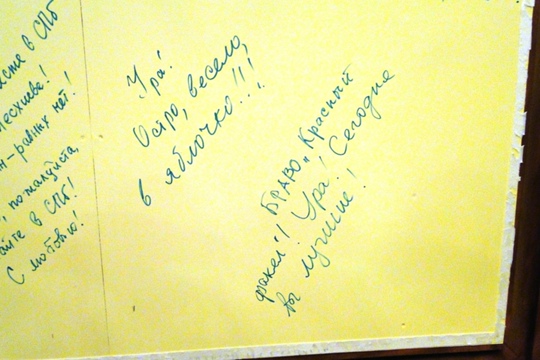 в СПб
!
-равных нет!
, пожалуйста,
в СПб!
С любовью!
Ура!
Остро, весело,
в яблочко!!!
БРАВО „Красный
факел"! Ура! Сегодня
вы лучшие!